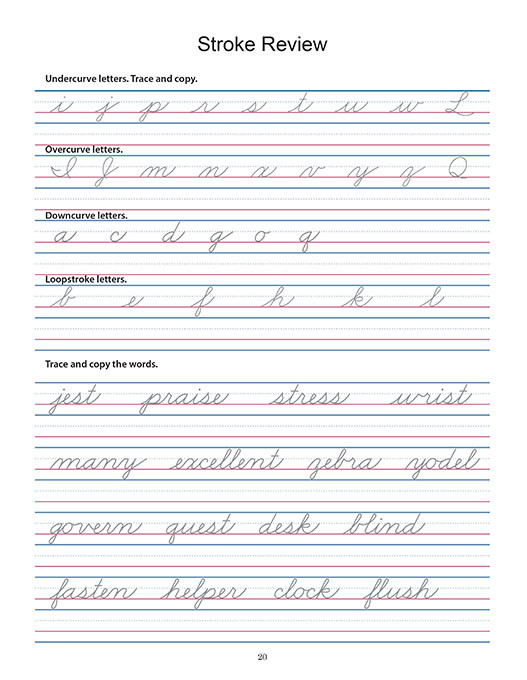 Stroke Review
Undercurve letters. Trace and copy.
i j p r s t u w L
Overcurve letters.
I J m n x v y z Q
Downcurve letters.
a c d g o q
Loopstroke letters.
b e f h k l
Trace and copy the words.
jest praise stress wrist
many excellent zebra yodel
govern quest desk blind
fasten helper clock flush
20